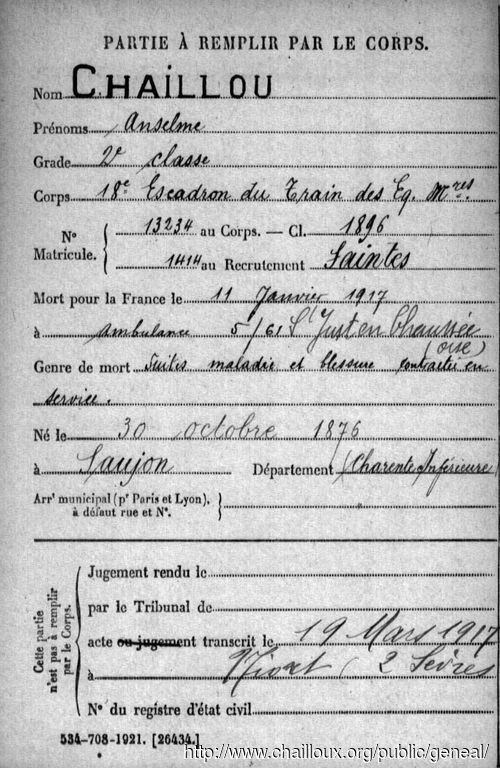 PARTIE À REMPLIR PAR LE CORPS.
Nom CHAILLOU
Prénoms Anselme
Grade 2e classe
Corps 18e Escadron du Train des Eq. Mres.
No Matricule. { 13234 au Corps. — Cl. 1896
1414 au Recrutement Saintes
Mort pour la France le 11 Janvier 1917
à Ambulance 5/61 St Just en Chaussée
(Oise)
Genre de mort Suites maladie et blessure contractée en
service.
Né le 30 octobre 1876
à Saujon Département Charente Inférieure
Arrt municipal (pr Paris et Lyon), à défaut rue et No. }
Cette partie n'est pas à remplir par le Corps.
Jugement rendu le
par le Tribunal de
acte ou jugement transcrit le 19 Mars 1917
à Niort (2 Sèvres
No du registre d'état civil
534-708-1921. [26434.]
http://www.chailloux.org/public/geneal/